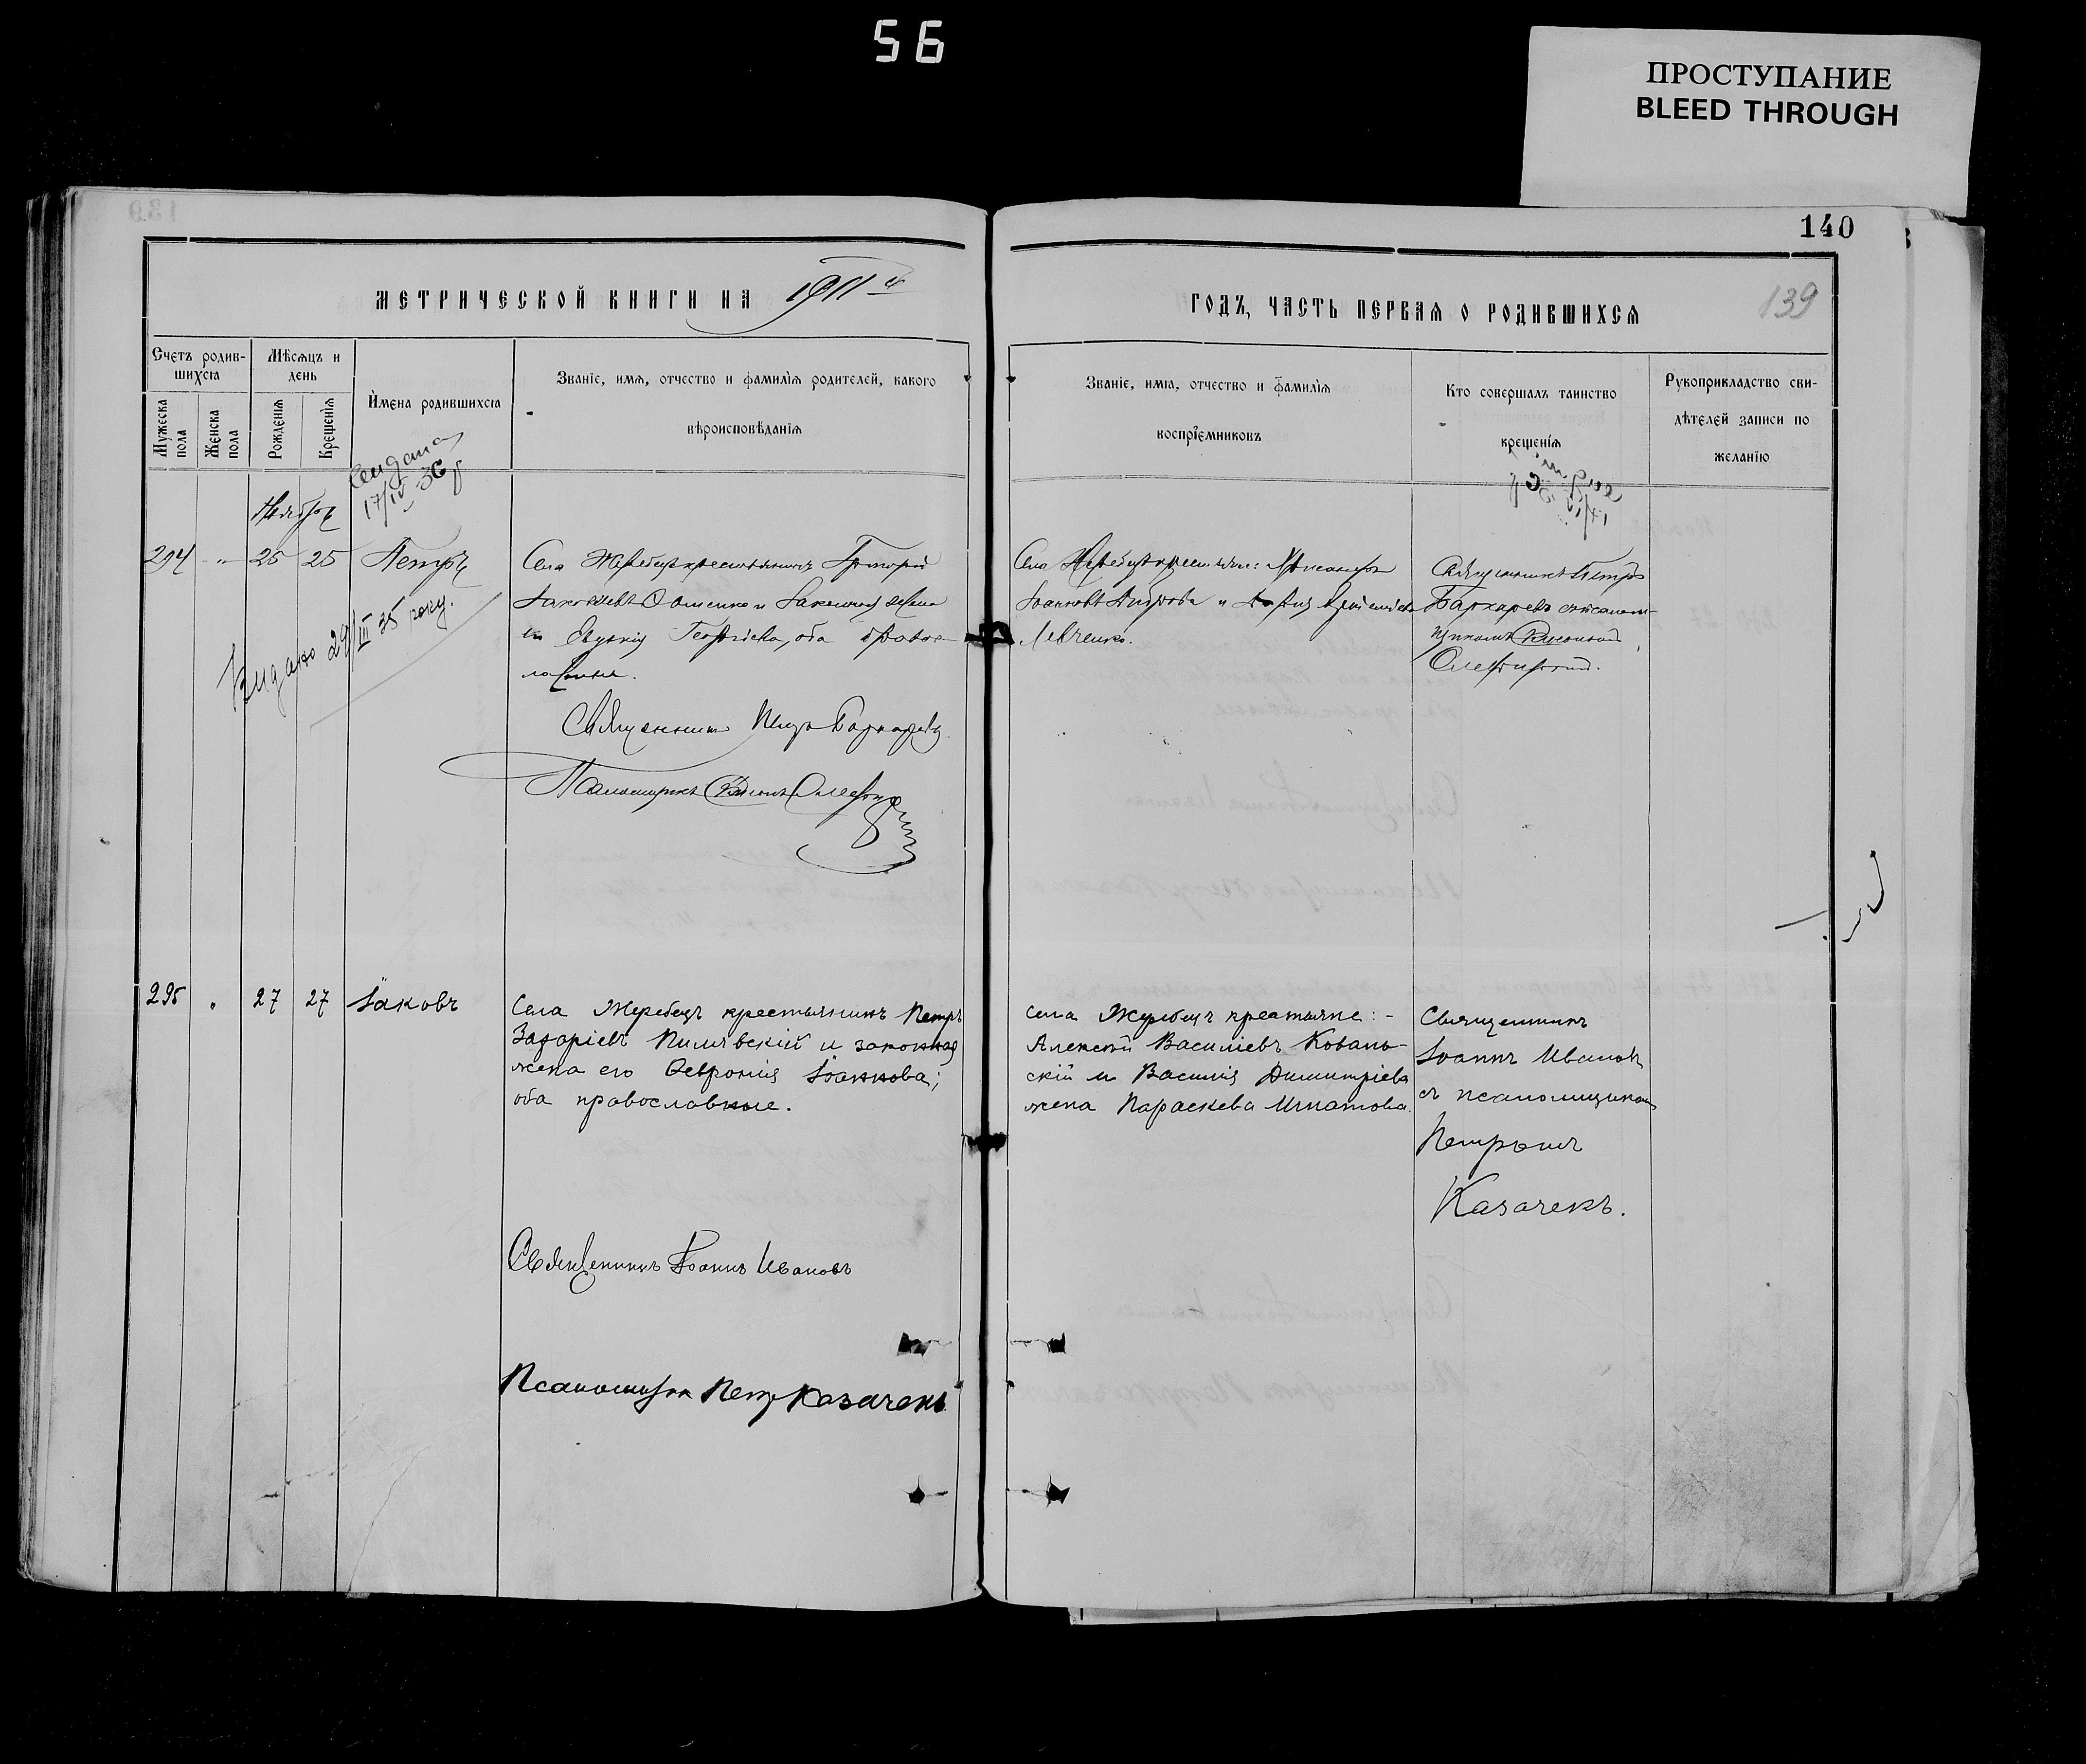 56
ПРОСТУПАНИЕ
BLEED THROUGH
140
139
МЕТРИЧЕСКОЙ КНИГИ НА 1911й
ГОДЪ, ЧАСТЬ ПЕРВАЯ О РОДИВШИХСЯ
Счетъ родив-
шихся
Мужеска
пола
Женска
пола
Мѣсяцъ и
день
Рожденія
Крещенія
Имена родившихся
Званіе, имя, отчество и фамилія родителей, какого
вѣроисповѣданія
Званіе, имя, отчество и фамилія
воспріемниковъ
Кто совершалъ таинство
крещенія
Рукоприкладство сви-
дѣтелей записи по
желанію
17/IV 36
Ноябрь
294 " 25 25 Петръ
Села Жеребца крестьянинъ Григорій
Іаковлевъ и законная жена
его Евдокія Георгіева, оба право-
славные.
Священникъ Петръ Бахаревъ
Псаломщикъ
Села Жеребца крестьяне:
Іоанновъ и
Левченко.
Священникъ Петръ
Бахаревъ съ псалом-
щикомъ
Видано 29/III 35 року.
295 " 27 27 Іаковъ
Села Жеребецъ крестьянинъ Петръ
Захаріевъ Пилявскій и законная
жена его Ѳевронія Іоаннова;
оба православные.
Священникъ Іоаннъ Ивановъ
Псаломщикъ Петръ Казачекъ.
села Жеребецъ крестьяне: -
Алексѣй Василіевъ Ковань-
скій и Василія Димитріева
жена Параскева Игнатова.
Священникъ
Іоаннъ Ивановъ
съ псаломщикомъ
Петромъ
Казачекъ.